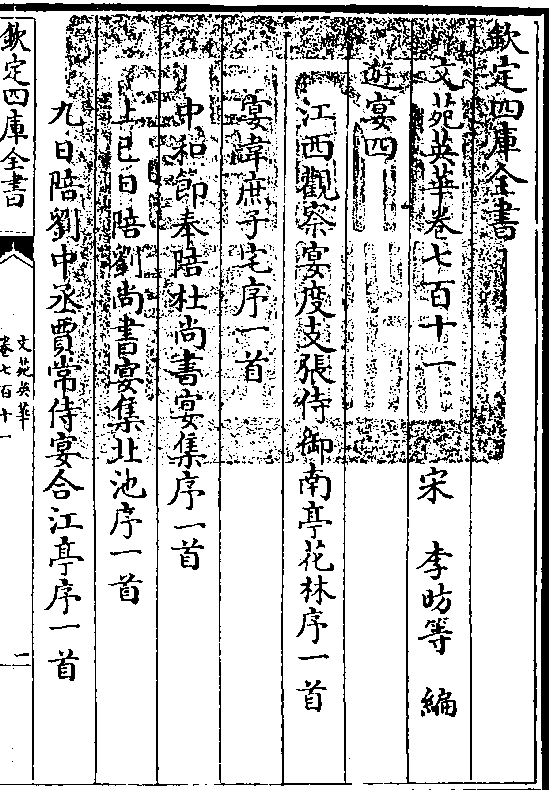 欽定四庫全書
文苑英華卷七百十一 宋 李昉等 編
遊宴四
江西觀察宴度支張侍御南亭花林序一首
宴韋庶子宅序一首
中和節奉陪杜尚書宴集序一首
上巳日陪劉尚書宴集北池序一首
九日陪劉中丞賈常侍宴合江亭序一首
欽定四庫全書
文苑英華
卷七百十一